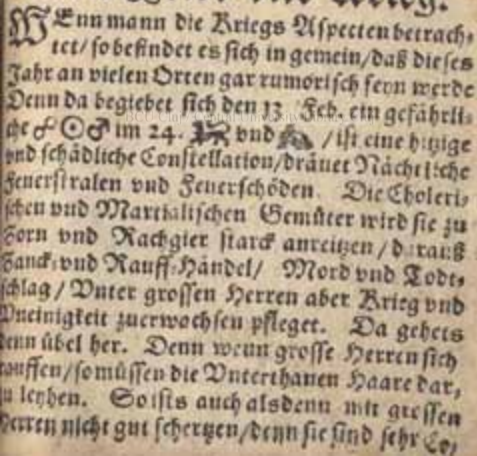 WEnn mann die Kriegs Aspecten betrach-
tet/ so befindet es sich in gemein/ daß dieses
Jahr an vielen Orten gar rumorisch seyn werde
Denn da begiebet sich den 13 Feb. ein gefährli-
che ☍ ☉ ♂ im 24. ♌ vnd ♒ / ist eine hitzige
vnd schädliche Constellation/ dräuet Nächtliche
Feuerstralen vnd Feuerschöden. Die Choleri-
schen vnd Martialischen Gemüter wird sie zu
Zorn vnd Rachgier starck anreitzen / darauß
Zanck- vnd Rauff-Händel/ Mord vnd Todt-
schlag / Vnter grossen Herren aber Krieg vnd
Vneinigkeit zuerwochsen pfleget. Da gehets
denn übel her. Denn wenn grosse Herren sich
rauffen/ so müssen die Vnterthanen Haare dar-
zu leyhen. So ists auch alsdenn mit grossen
Herren nicht gut schertzen/ denn sie sind sehr